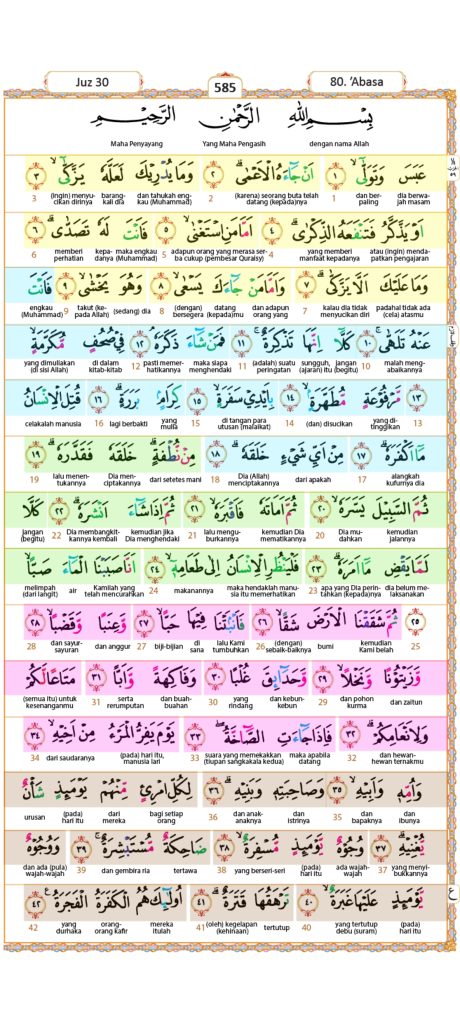 Juz 30
585
80. ‘Abasa
بِسْمِ اللّٰهِ الرَّحْمٰنِ الرَّحِيْمِ
dengan nama Allah Yang Maha Pengasih Maha Penyayang
عَبَسَ وَتَوَلّٰىٓ ۙ ١ اَنْ جَاۤءَهُ الْاَعْمٰىۗ ٢ وَمَا يُدْرِيْكَ لَعَلَّهٗ يَزَّكّٰىٓ ۙ ٣
dia berwajah masam dan berpaling 1 (karena) seorang buta telah datang (kepada)nya 2 dan tahukah engkau (Muhammad) barangkali dia (ingin) menyucikan dirinya 3
اَوْ يَذَّكَّرُ فَتَنْفَعَهُ الذِّكْرٰىۗ ٤ اَمَّا مَنِ اسْتَغْنٰىۙ ٥ فَاَنْتَ لَهٗ تَصَدّٰىۗ ٦
atau (ingin) mendapatkan pengajaran yang memberi manfaat kepadanya 4 adapun orang yang merasa serba cukup (pembesar Quraisy) 5 maka engkau kepadanya memberi perhatian 6
وَمَا عَلَيْكَ اَلَّا يَزَّكّٰىۗ ٧ وَاَمَّا مَنْ جَاۤءَكَ يَسْعٰىۙ ٨ وَهُوَ يَخْشٰىۙ ٩ فَاَنْتَ
padahal tidak ada (cela) atasmu kalau dia tidak menyucikan diri 7 dan adapun orang yang datang kepadamu (dengan) bersegera 8 (sedang) dia takut (kepada Allah) 9 engkau (Muhammad)
عَنْهُ تَلَهّٰىۚ ١٠ كَلَّآ اِنَّهَا تَذْكِرَةٌ ۚ ١١ فَمَنْ شَاۤءَ ذَكَرَهٗ ۘ ١٢ فِيْ صُحُفٍ مُّكَرَّمَةٍۙ
malah mengabaikannya 10 jangan (begitu) sungguh, (ajaran) itu (adalah) suatu peringatan 11 maka siapa menghendaki pasti memerhatikannya 12 di dalam kitab-kitab yang dimuliakan (di sisi Allah)
١٣ مَّرْفُوْعَةٍ مُّطَهَّرَةٍ ۢ ۙ ١٤ بِاَيْدِيْ سَفَرَةٍۙ ١٥ كِرَامٍ ۢ بَرَرَةٍۗ ١٦ قُتِلَ الْاِنْسَانُ
13 yang ditinggikan (dan) disucikan 14 di tangan para utusan (malaikat) 15 yang mulia lagi berbakti 16 celakalah manusia
مَآ اَكْفَرَهٗۗ ١٧ مِنْ اَيِّ شَيْءٍ خَلَقَهٗۗ ١٨ مِنْ نُّطْفَةٍۗ خَلَقَهٗ فَقَدَّرَهٗۗ ١٩
alangkah kufurnya dia 17 dari apakah Dia (Allah) menciptakannya 18 dari setetes mani Dia menciptakannya lalu menentukannya 19
ثُمَّ السَّبِيْلَ يَسَّرَهٗۙ ٢٠ ثُمَّ اَمَاتَهٗ فَاَقْبَرَهٗۙ ٢١ ثُمَّ اِذَا شَاۤءَ اَنْشَرَهٗۗ ٢٢ كَلَّا
kemudian jalannya Dia mudahkan 20 kemudian Dia mematikannya lalu menguburkannya 21 kemudian jika Dia menghendaki Dia membangkitkannya kembali 22 jangan (begitu)
لَمَّا يَقْضِ مَآ اَمَرَهٗۗ ٢٣ فَلْيَنْظُرِ الْاِنْسَانُ اِلٰى طَعَامِهٖٓ ۙ ٢٤ اَنَّا صَبَبْنَا الْمَاۤءَ صَبًّاۙ
dia belum melaksanakan apa yang Dia perintahkan (kepada)nya 23 maka hendaklah manusia itu memerhatikan makanannya 24 Kamilah yang telah mencurahkan air melimpah (dari langit)
٢٥ ثُمَّ شَقَقْنَا الْاَرْضَ شَقًّاۙ ٢٦ فَاَنْۢبَتْنَا فِيْهَا حَبًّاۙ ٢٧ وَّعِنَبًا وَّقَضْبًاۙ ٢٨
25 kemudian Kami belah bumi (dengan) sebaik-baiknya 26 lalu Kami tumbuhkan di sana biji-bijian 27 dan anggur dan sayur-sayuran 28
وَّزَيْتُوْنًا وَّنَخْلًاۙ ٢٩ وَّحَدَاۤىِٕقَ غُلْبًا ٣٠ وَّفَاكِهَةً وَّاَبًّا ٣١ مَتَاعًا لَّكُمْ
dan zaitun dan pohon kurma 29 dan kebun-kebun yang rindang 30 dan buah-buahan serta rerumputan 31 (semua itu) untuk kesenanganmu
وَلِاَنْعَامِكُمْۗ ٣٢ فَاِذَا جَاۤءَتِ الصَّاۤخَّةُ ۖ ٣٣ يَوْمَ يَفِرُّ الْمَرْءُ مِنْ اَخِيْهِۙ ٣٤
dan hewan-hewan ternakmu 32 maka apabila datang suara yang memekakkan (tiupan sangkakala kedua) 33 (pada) hari itu, manusia lari dari saudaranya 34
وَاُمِّهٖ وَاَبِيْهِۙ ٣٥ وَصَاحِبَتِهٖ وَبَنِيْهِۗ ٣٦ لِكُلِّ امْرِئٍ مِّنْهُمْ يَوْمَىِٕذٍ شَأْنٌ
dan ibunya dan bapaknya 35 dan istrinya dan anak-anaknya 36 bagi setiap orang dari mereka (pada) hari itu urusan
يُّغْنِيْهِۗ ٣٧ وُجُوْهٌ يَّوْمَىِٕذٍ مُّسْفِرَةٌۙ ٣٨ ضَاحِكَةٌ مُّسْتَبْشِرَةٌ ۚ ٣٩ وَوُجُوْهٌ
yang menyibukkannya 37 ada wajah-wajah (pada) hari itu yang berseri-seri 38 tertawa dan gembira ria 39 dan ada (pula) wajah-wajah
يَّوْمَىِٕذٍ عَلَيْهَا غَبَرَةٌۙ ٤٠ تَرْهَقُهَا قَتَرَةٌ ۗ ٤١ اُولٰۤىِٕكَ هُمُ الْكَفَرَةُ الْفَجَرَةُ ٤٢
(pada) hari itu yang tertutup debu (suram) 40 tertutup (oleh) kegelapan (kehinaan) 41 mereka itulah orang-orang kafir yang durhaka 42
ع